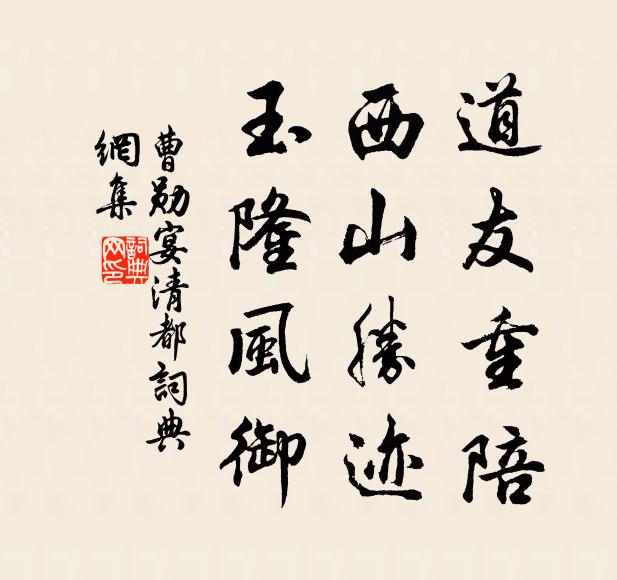 道友重陪
西山勝迹
玉隆風御
曹勛宴清都詞典
網集
詞典网印